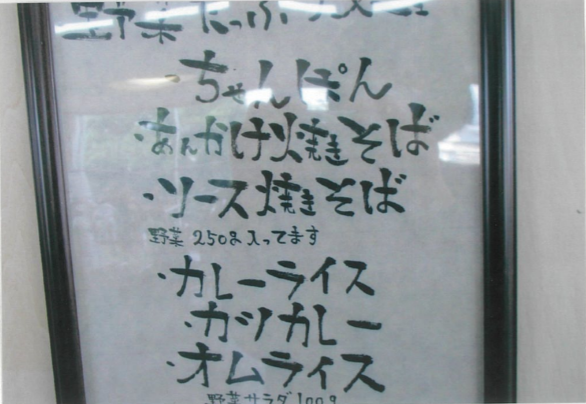 野菜たっぷりメニュー
・ちゃんぽん
・あんかけ焼きそば
・ソース焼きそば
野菜 250g入ってます
・カレーライス
・カツカレー
・オムライス
野菜サラダ100g